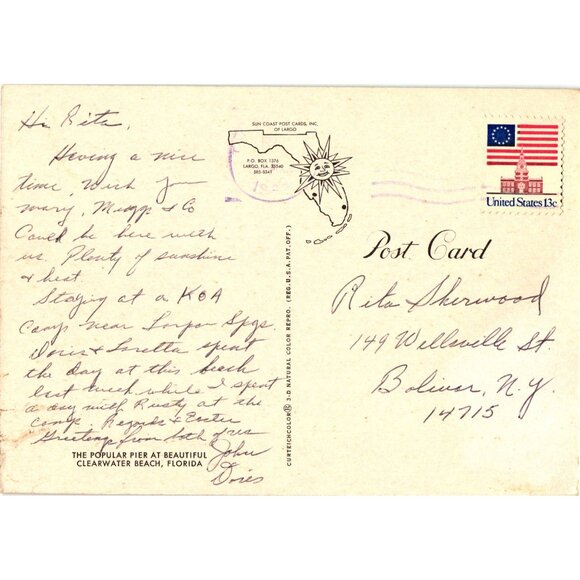 Hi Rita,
Having a nice
time. Wish you
mary, Muggs & Co
Could be here with
us. Plenty of sunshine
& heat.
Staying at a KOA
Camp near Tarpon Spgs.
Doris & Loretta spent
the day at this beach
last week while I spent
a day with Rusty at the
camp. Regards & Easter
Greetings from both of us
John
Doris
THE POPULAR PIER AT BEAUTIFUL
CLEARWATER BEACH, FLORIDA
SUN COAST POST CARDS, INC.
OF LARGO
P.O. BOX 1376
LARGO, FLA. 33540
585-5547
CURTEICHCOLOR® 3-D NATURAL COLOR REPRO. (REG. U.S.A. PAT. OFF.)
United States 13c
Post Card
Rita Sherwood
149 Wellsville St.
Bolivar, N.Y.
14715